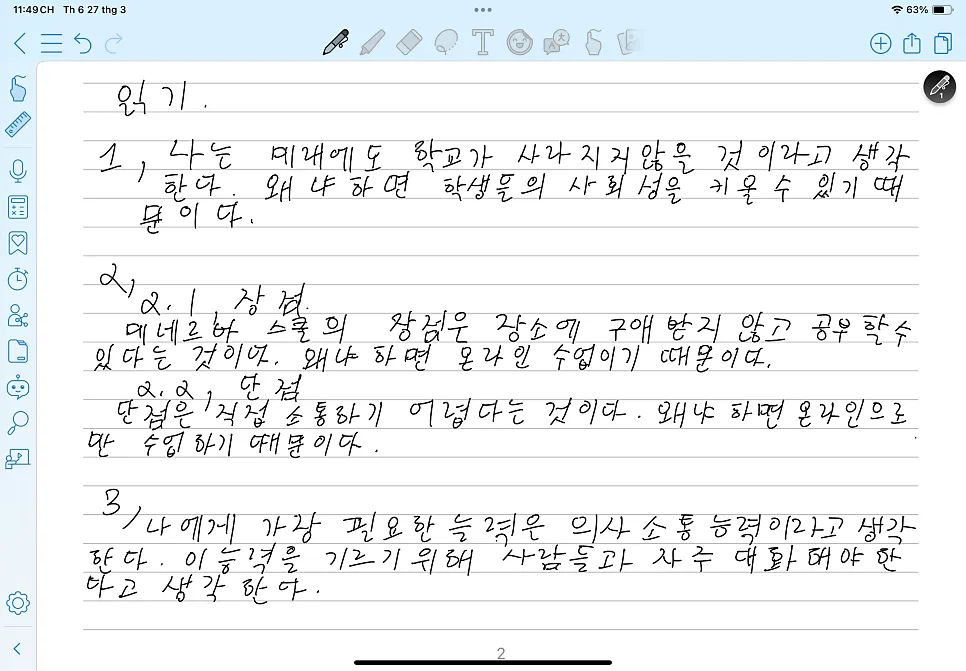 11:49 CH Th 6 27 thg 3
63%
1
읽기.
1, 나는 미래에도 학교가 사라지지 않을 것이라고 생각
한다. 왜냐하면 학생들의 사회성을 키울 수 있기 때
문이다.
2,
2.1, 장점.
미네르바 스쿨의 장점은 장소에 구애 받지 않고 공부할 수
있다는 것이다. 왜냐하면 온라인 수업이기 때문이다.
2.2, 단점
단점은 직접 소통하기 어렵다는 것이다. 왜냐하면 온라인으로
만 수업하기 때문이다.
3,
나에게 가장 필요한 능력은 의사소통 능력이라고 생각
한다. 이 능력을 기르기 위해 사람들과 자주 대화해야 한
다고 생각한다.
2